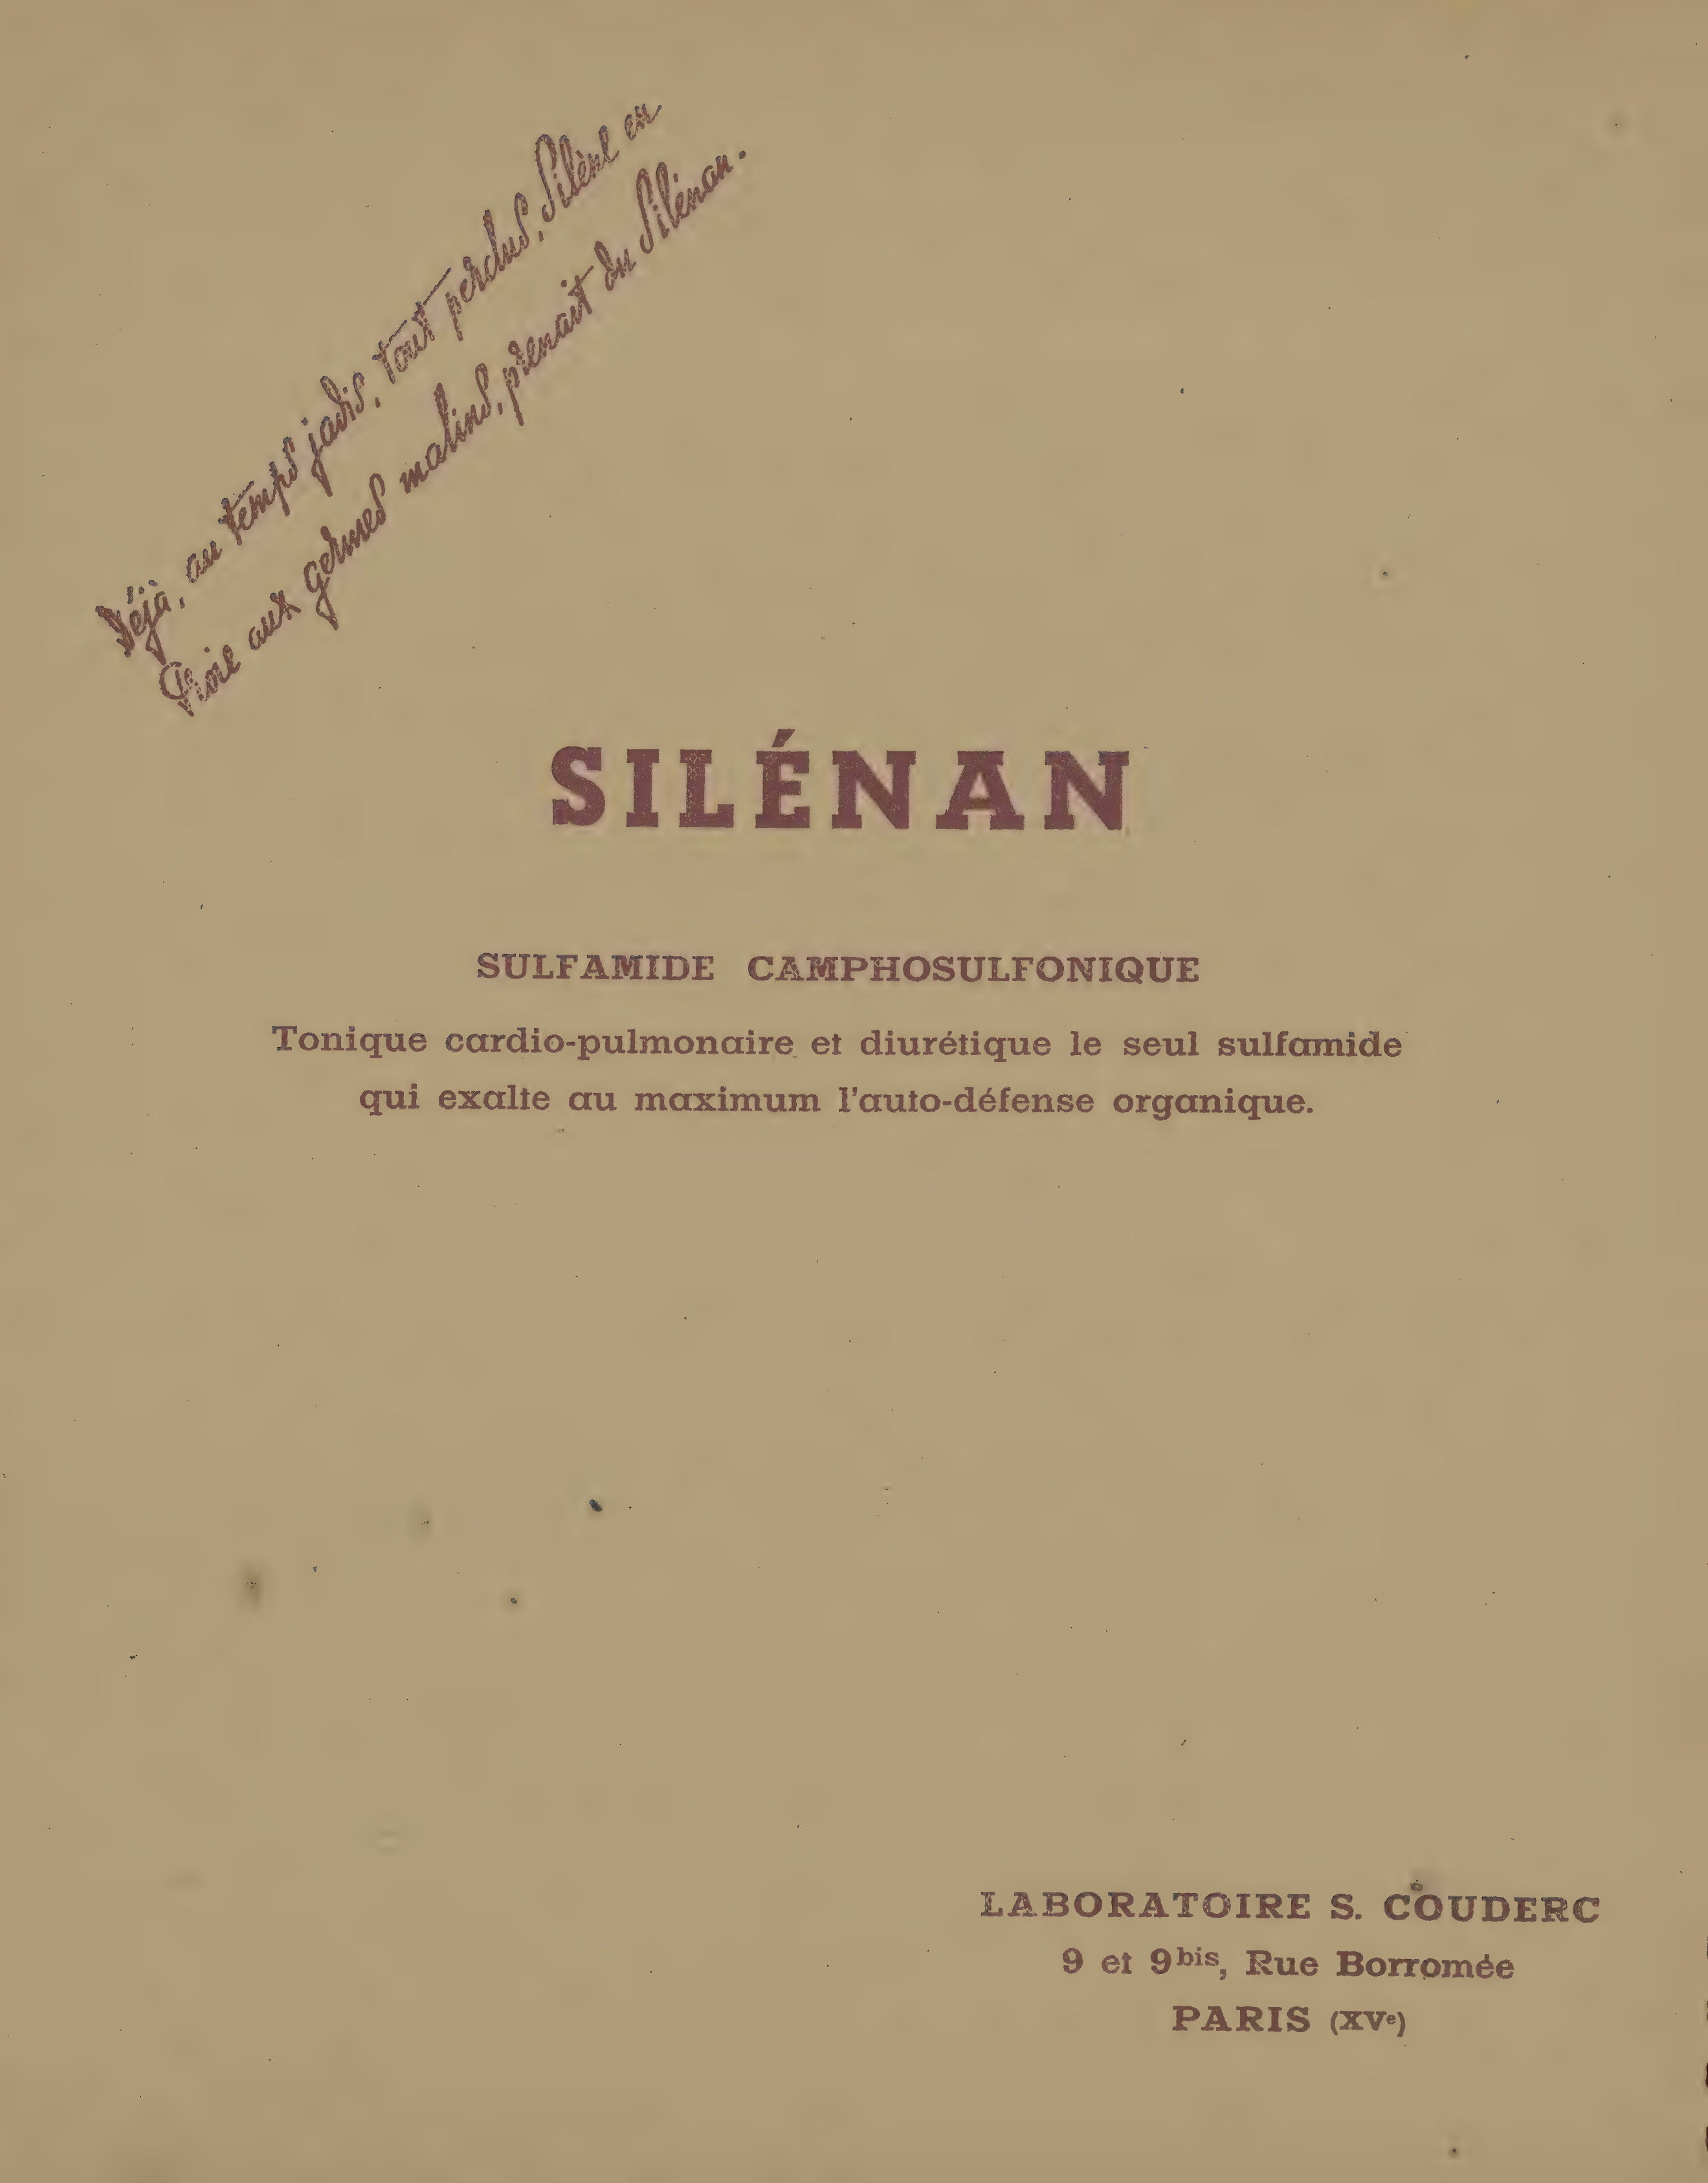 Déjà, au temps jadis, tout perdus, Silène en
Proie aux germes malins, prenait du Silénan.
SILÉNAN
SULFAMIDE CAMPHOSULFONIQUE
Tonique cardio-pulmonaire et diurétique le seul sulfamide
qui exalte au maximum l'auto-défense organique.
LABORATOIRE S. COUDERC
9 et 9bis, Rue Borromée
PARIS (XVe)